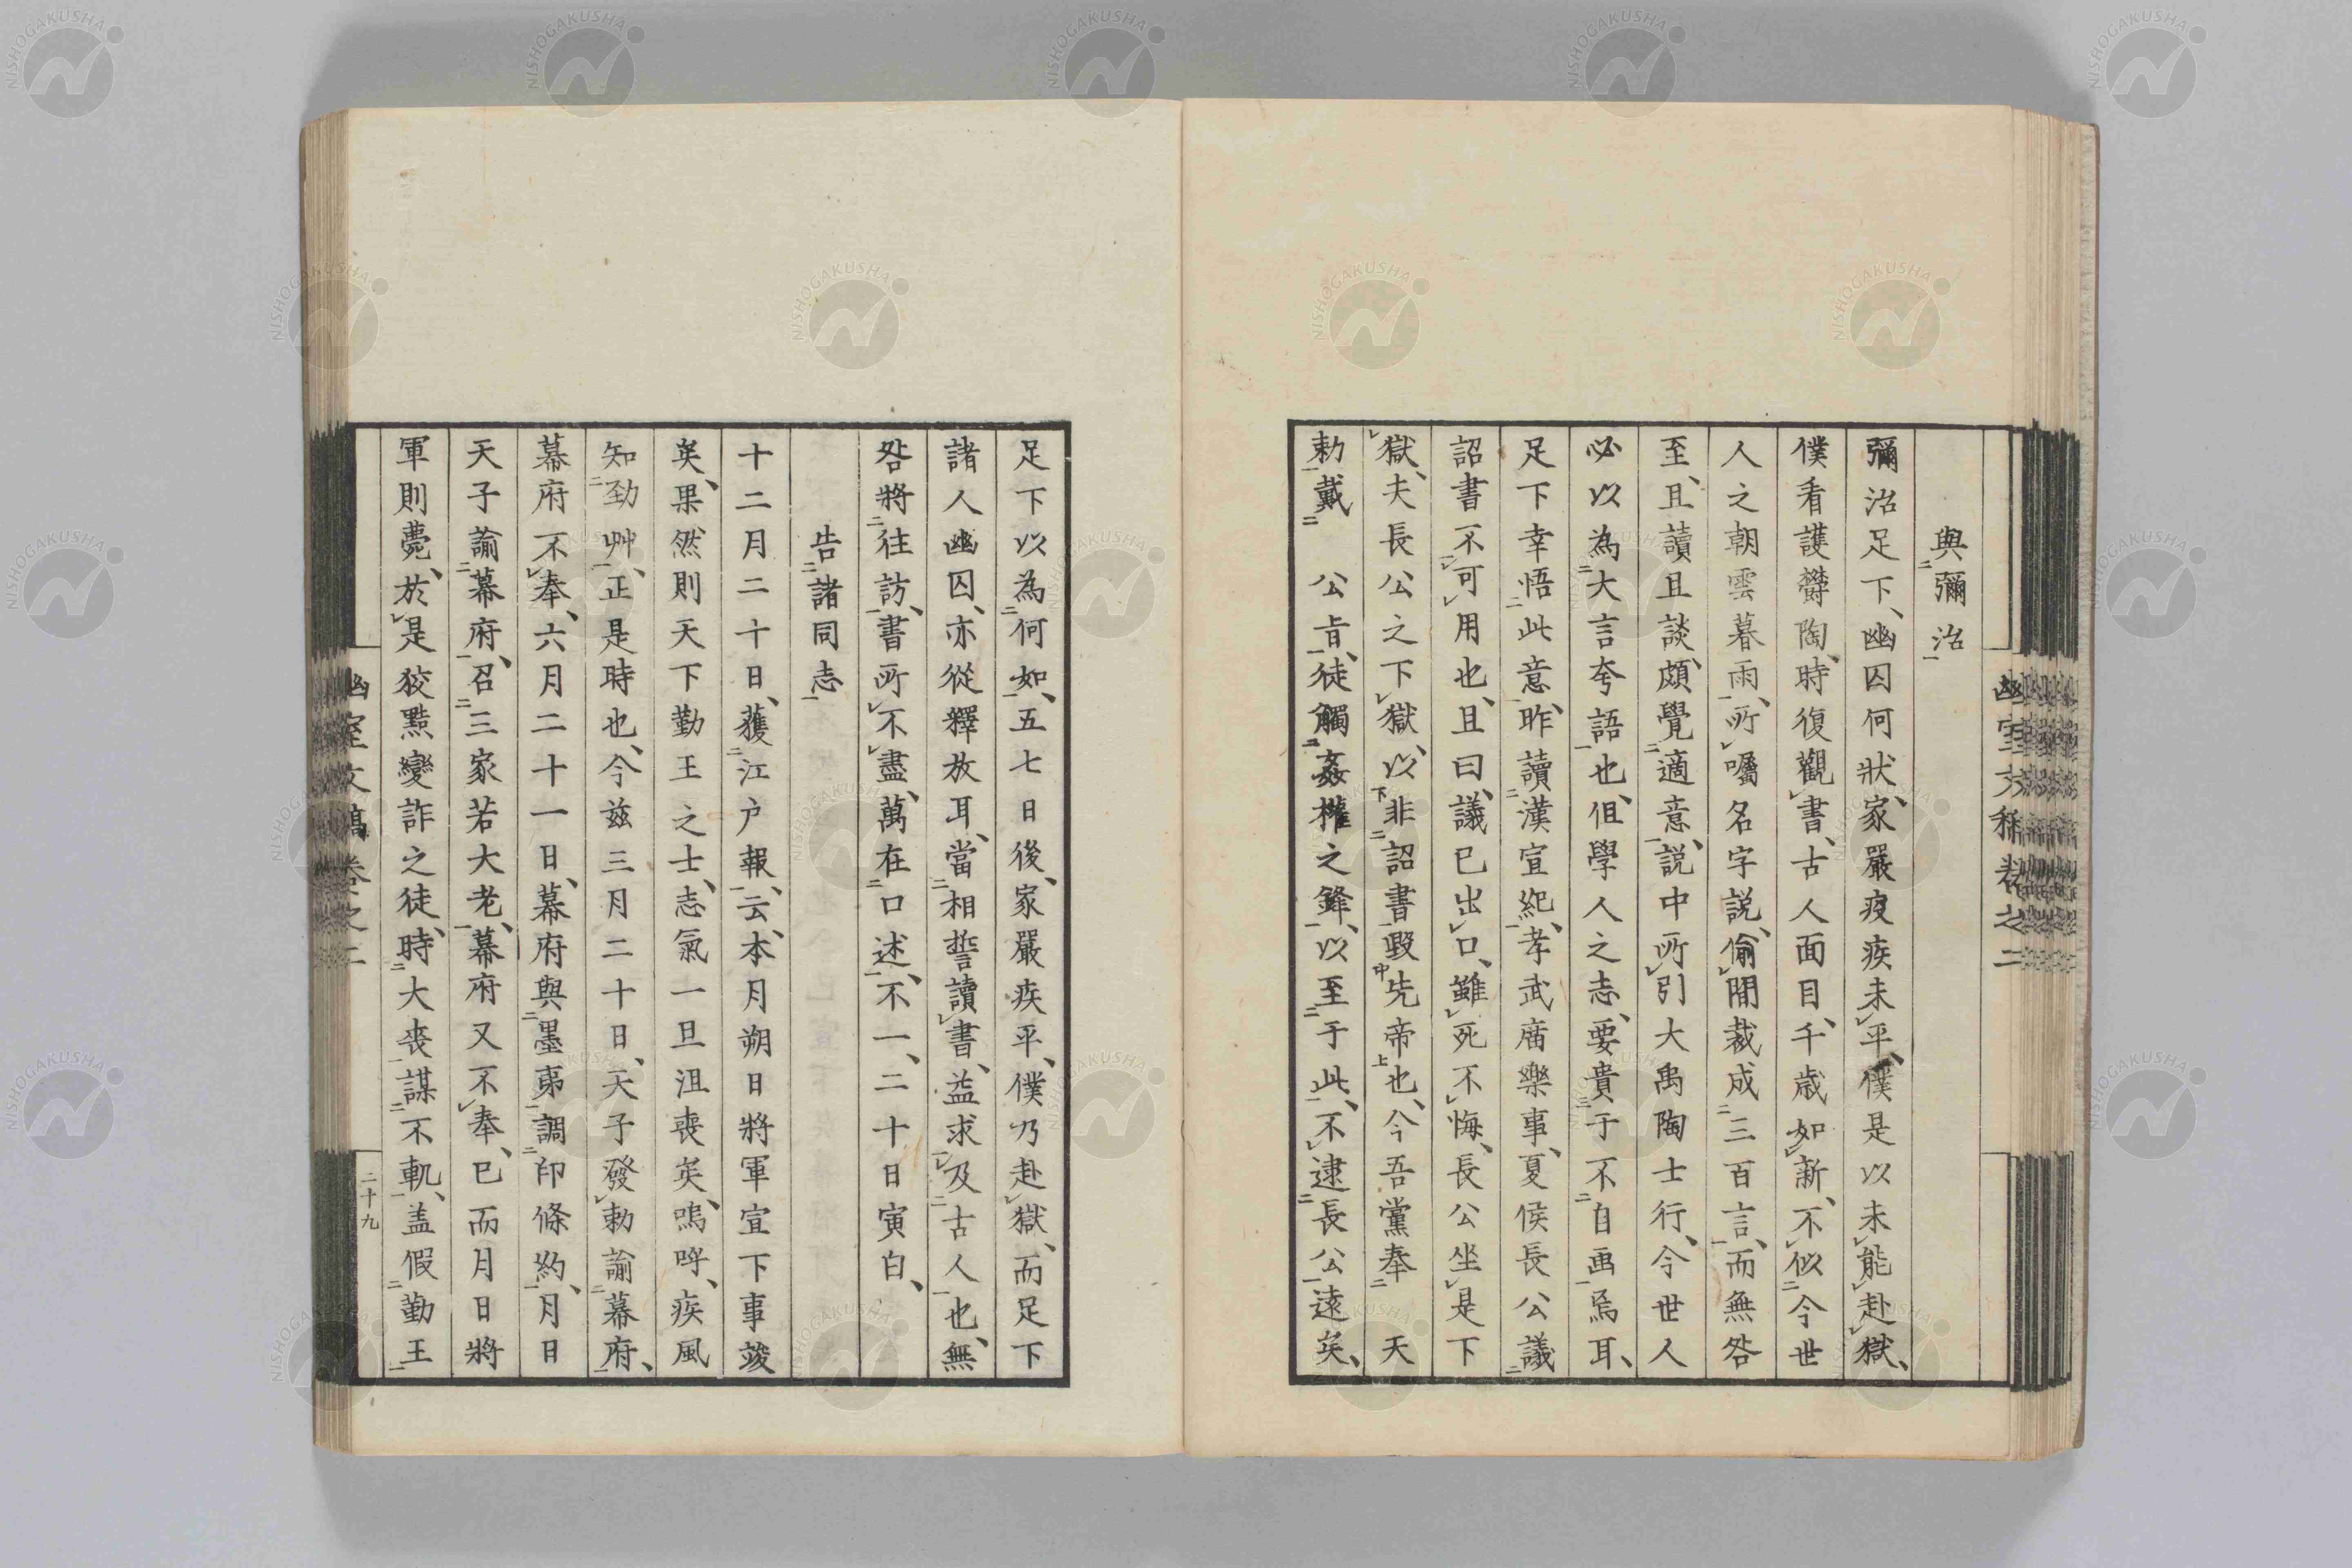 與彌治
彌治足下、幽囚何狀、家嚴疫疾未平、僕是以未能赴獄、
僕看護欝陶、時復觀書、古人面目、千歲如新、不似今世
人之朝雲暮雨、所囑名字説、偷間裁成三百言、而無咎
至、且讀且談、頗覺適意、説中所引大禹陶士行、今世人
必以為大言夸語也、但學人之志、要貴于不自画焉耳、
足下幸悟此意、昨讀漢宣紀、孝武庿樂事、夏侯長公議
詔書不可用也、且曰、議已出口、雖死不悔、長公坐是下
獄、夫長公之下獄、以非詔書毀先帝也、今吾黨奉 天
勅戴 公㫖、徒觸姦權之鋒、以至于此、不逮長公遠矣、
足下以為何如、五七日後、家嚴疾平、僕乃赴獄、而足下
諸人幽囚、亦從釋放耳、當相誓讀書、益求及古人也、無
咎將往訪、書所不盡、萬在口述、不一、二十日寅白、
告諸同志
十二月二十日、獲江户報、云、本月朔日將軍宣下事竣
矣、果然則天下勤王之士、志氣一旦沮喪矣、嗚呼、疾風
知勁艸、正是時也、今兹三月二十日、天子發勅諭幕府、
幕府不奉、六月二十一日、幕府與墨夷調印條約、月日
天子諭幕府、召三家若大老、幕府又不奉、已而月日將
軍則薨、於是狡黠變詐之徒、時大喪謀不軌、盖假勤王
幽室文稿卷之二
二十九
幽室文稿卷之二
NISHOGAKUSHA